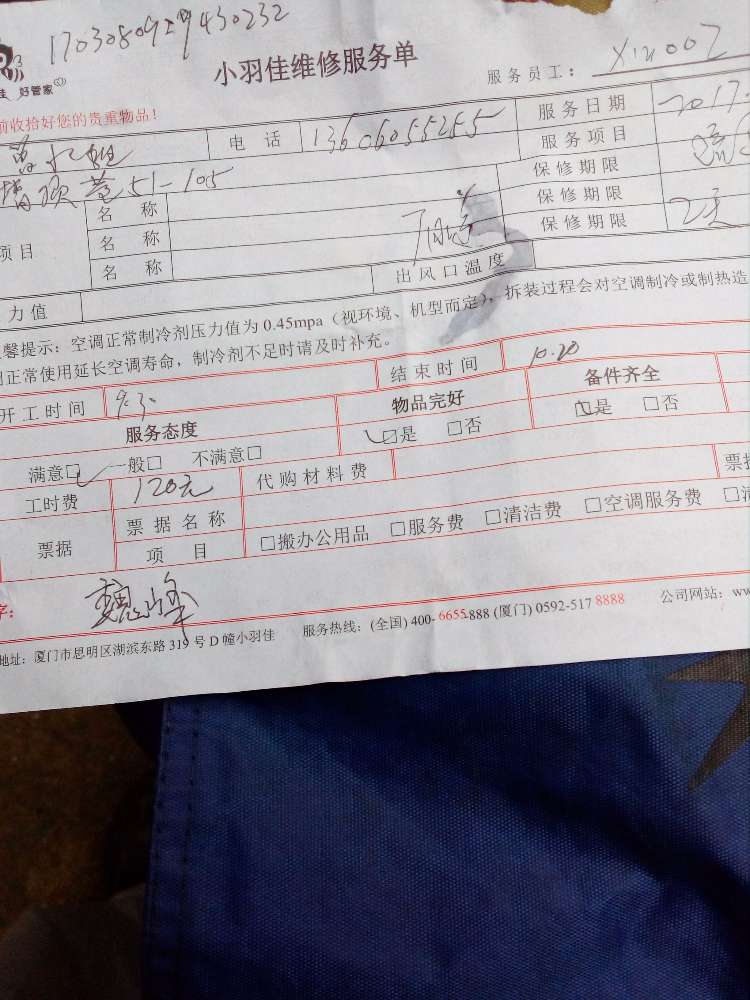 1703080929430232
小羽佳维修服务单
服务员工： XM007
佳 好管家
前收拾好您的贵重物品！
电 话 13606055255 服务日期 2017.
51-105 服务项目
名 称 保修期限
项目 名 称 保修期限
名 称 保修期限 2天
力值 出风口温度
馨提示：空调正常制冷剂压力值为 0.45mpa（视环境、机型而定），拆装过程会对空调制冷或制热造
正常使用延长空调寿命，制冷剂不足时请及时补充。
开工时间 结束时间 10.20
服务态度 物品完好 备件齐全
满意□ 一般□ 不满意□ □是 □否 □是 □否
工时费 120元 代购材料费
票据 票据名称 票据
项 目 □搬办公用品 □服务费 □清洁费 □空调服务费 □清
字： 魏峰
地址：厦门市思明区湖滨东路 319 号 D 幢小羽佳 服务热线：(全国) 400-6655-888 (厦门) 0592-517 8888 公司网站：ww